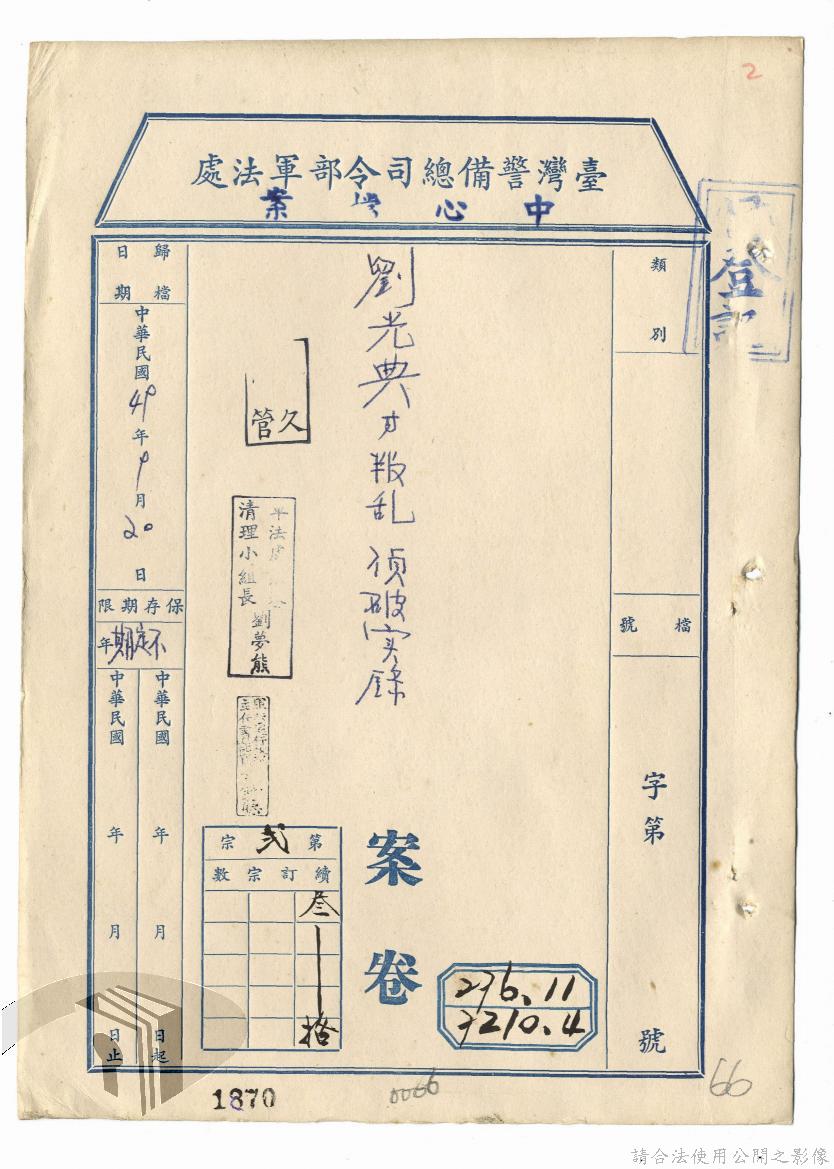 2
臺灣警備總司令部軍法處
中心檔案
登記
類別
檔號
字第號
劉光典才叛乱偵破实錄
案卷
久管
清理小組長劉夢熊
歸檔日期
中華民國49年9月20日
保存期限
不定期年
中華民國 年 月 日起
中華民國 年 月 日止
第弍宗
續訂宗數
叁
拾
276.11
7210.4
1870
0066
66
請合法使用公開之影像